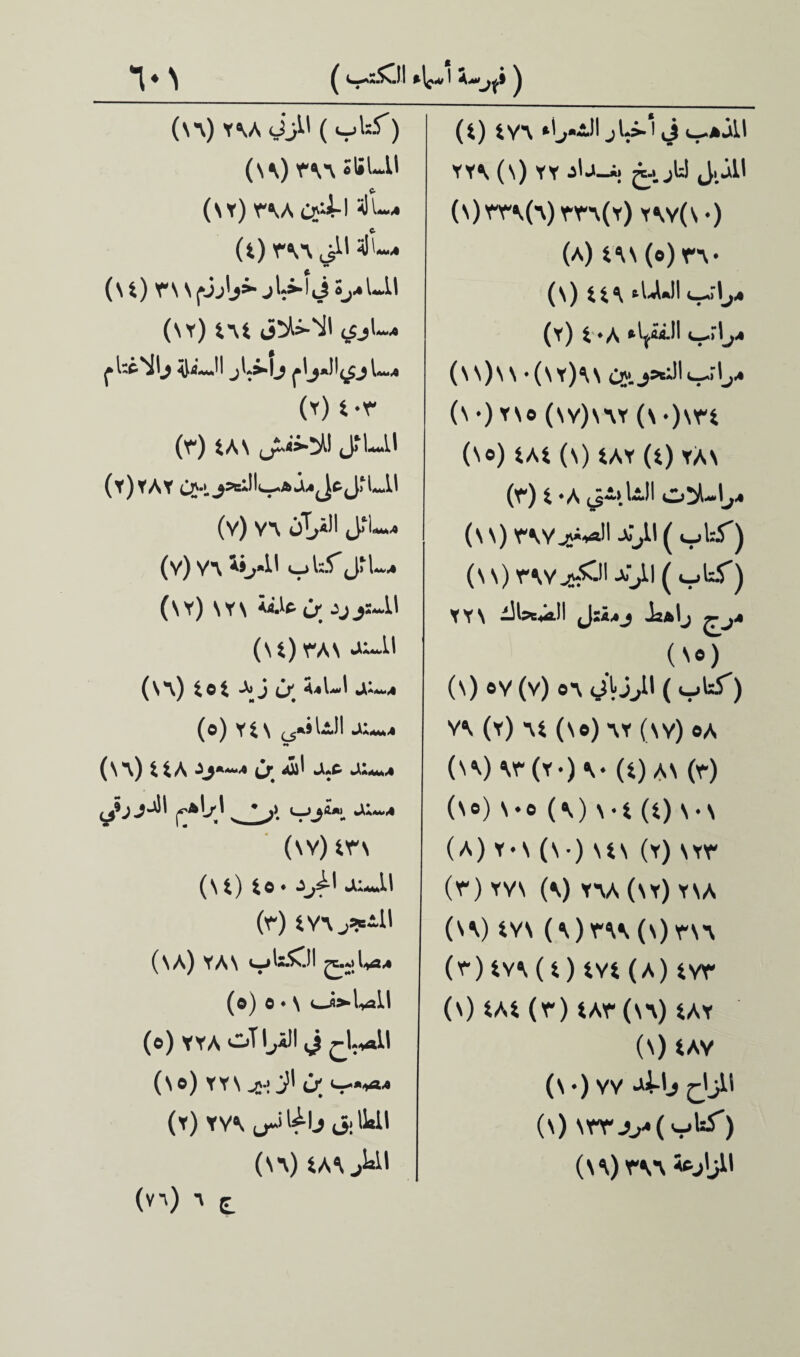 ( فهرسة أسماء الكتب ) ٦٠١
المذهب في أخبار الشعراء ٤٧٦ (٤)
المذيل لتاريخ بغداد ٢٢ (١) ٢٢٩
(١٠)٢٩٧ (٢)٣٣٦ (٦)٣٣٩ (١)
٣٦٠ (٥) ٤٩١ (٨)
مراتب العلماء ٤٤٩ (١)
مراتب الفقهاء ٤٠٨ (٢)
مراتب النحويين ٩١(١٢)١١٠(١١)
١٣٤(١٠) ١٦٢(١٧) ٢١٥ (١٠)
٢٨١ (٤) ٤٨٢ (١) ٤٨٤ (١٥)
مراسلات القاضي ٤٠٨ (٣)
( كتاب ) المزيد الصغير ٣٩٧ (١١)
( كتاب ) المزيد الكبير ٣٩٧ (١١)
مرج راهط ومقتل الضحاك ٢٢١
(١٥)
( كتاب ) المرزباني ٥٦ (٧) ٥٧ (١)
٥٨ (١٧) ٦٢ (١٥) ٦٤ (٢) ٧٩
(٣) ٨١ (٤) ٩٠ (٢٠) ٩٣ (١٩)
١٠١ (٤) ١٠٤ (٩) ١٠٥ (١٥)
١٢٣ (٢) ١٤١ (١٠) ٢٠١ (٨)
٢١٨ (١٢) ٢٦٨ (٩) ٢٧١ (٣)
٣١٦ (١) ٣٩٩ (٩) ٤٧١ (١٩)
٤٧٣ (٨) ٤٧٤ (٤) ٤٧٩ (٣)
٤٨٢ (١٦) ٤٨٣ (٣) ٤٨٤ (١)
٤٨٧ (١)
المزاح والجد ٧٧ (١٠)
( كتاب ) مزرد ١٣٣ (١)
المزارعة ٣٩٦ (١٩)
( كتاب ) المزني ٢٩٨ (١٦)
المساقاة ٣٩٦ (١٩)
مسألة الحلبين ٣٩٨ (١٢)
مسألة الري ٣٩٦ (٤)
المسامرة في أخبار خوارزم ٣٦١ (١٤)
مساوي الاخلاق ٤٦٤ (١٢)
مساوي العوام وأخبار السفلة والاغتام
٤٠٣ (٢)
المسائل للاخفش ٤٨١ (٣)
المسائل على مذهب النحويين ٢٨٢(٢)
مسائل القرآن ٧٦ (٧)
مسائل كتاب المعرفة ٧٦ (٧)
المستورد بن علفة ١٢١ (١٢)
المسند ٣٨١ (١٤)
مسند أسامة بن زيد ٤٥٤ (١٦)
مسند الشافعي ٢٤١ (٥)
مسند عبد الله بن مسعود ٤٤٨ (١٦)
مسند يعقوب بن ابراهيم الدورقي
٤٣١ (١٧)
المسند الاحمر ٤٥٠ (١٤)
المشجر ٤٧٦ (٣)
مصابيح الكتاب ٢٨١ (١٨)
المصاحف ٥٠١ (٥)
المصباح في القرآت ٢٢٨ (٥)
مصعب بن الزبير ٢٢١ (١٥)
المطابق والمجانس ٢٧٩ (٢)
المطر ٤٨٩ (١٦)
ج ٦ (٧٦)